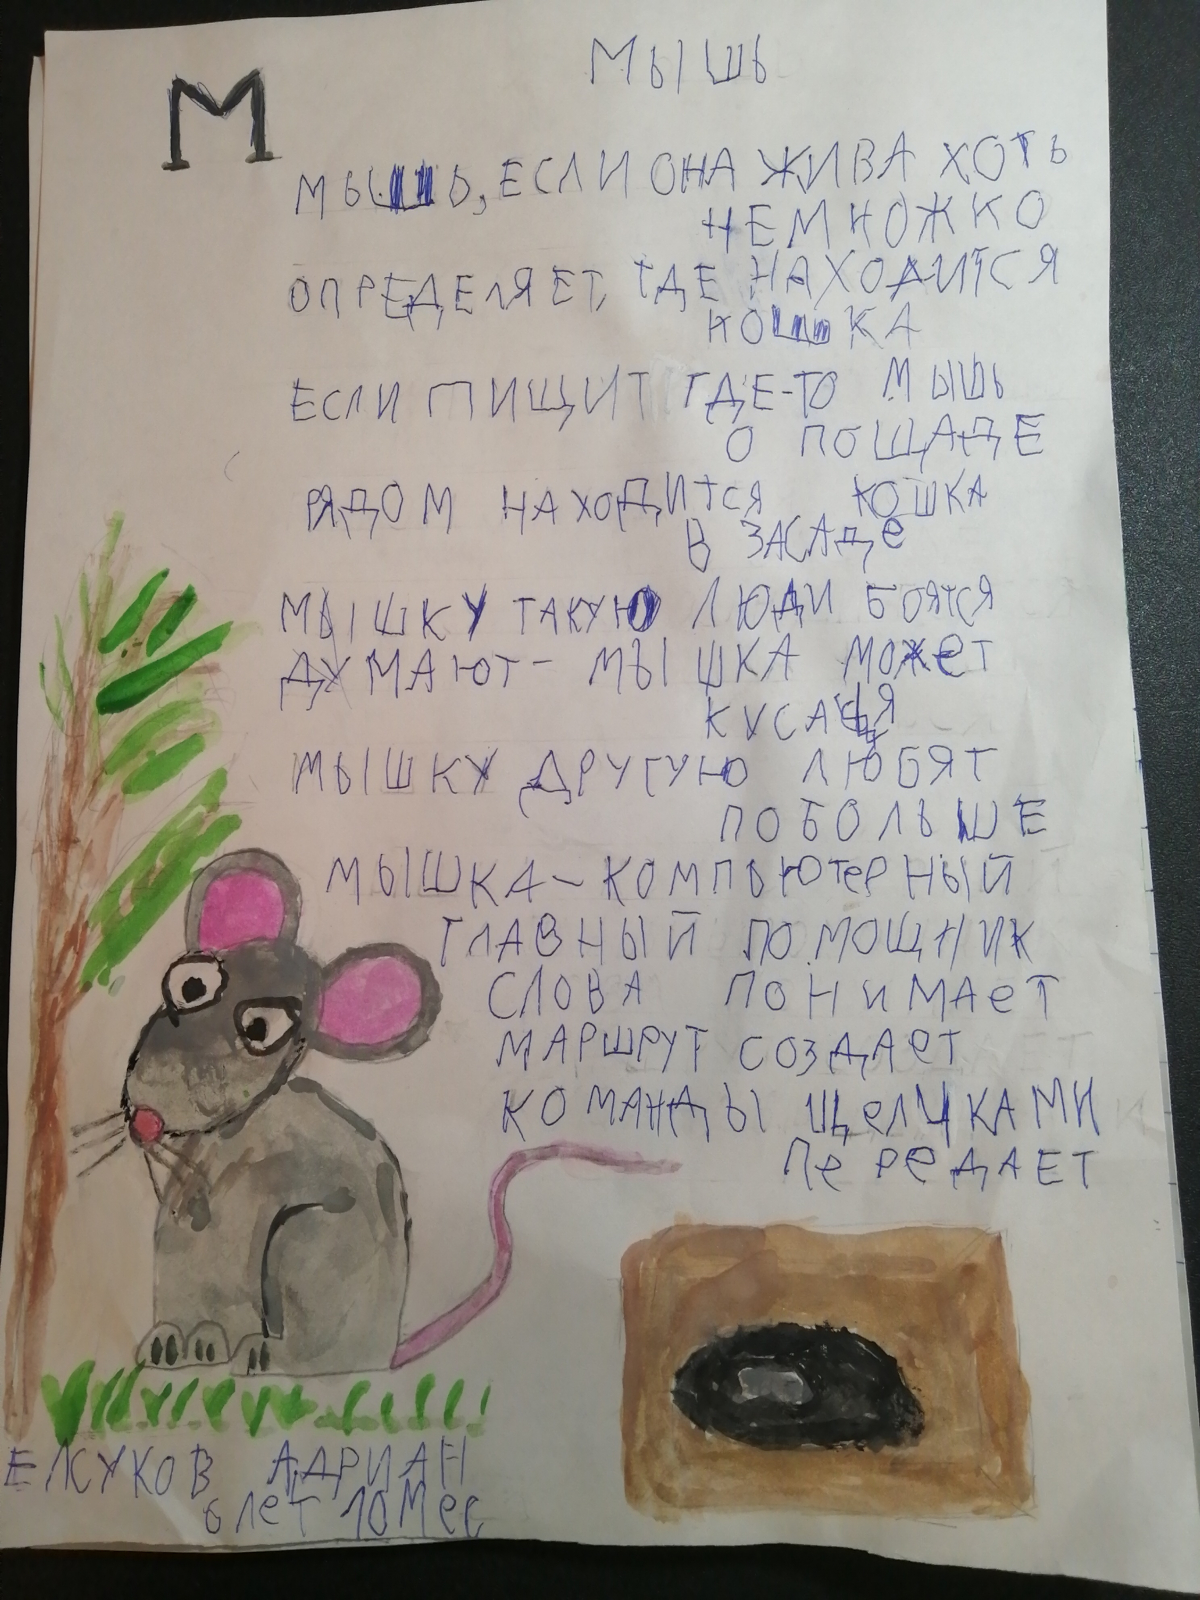 М
МЫШЬ
МЫШЬ, ЕСЛИ ОНА ЖИВА ХОТЬ
НЕМНОЖКО
ОПРЕДЕЛЯЕТ, ГДЕ НАХОДИТСЯ
КОШКА
ЕСЛИ ПИЩИТ ГДЕ-ТО МЫШЬ
О ПОЩАДЕ
РЯДОМ НАХОДИТСЯ КОШКА
В ЗАСАДЕ
МЫШКУ ТАКУЮ ЛЮДИ БОЯТСЯ
ДУМАЮТ - МЫШКА МОЖЕТ
МЫШКУ ДРУГУЮ ЛЮБЯТ
ПОБОЛЬШЕ
МЫШКА - КОМПЬЮТЕРНЫЙ
ГЛАВНЫЙ ПОМОЩНИК
СЛОВА ПОНИМАЕТ
МАРШРУТ СОЗДАЕТ
КОМАНДЫ ЩЕЛЧКАМИ
ПЕРЕДАЕТ
ЕЛСУКОВ АДРИАН
6 лет 10 мес